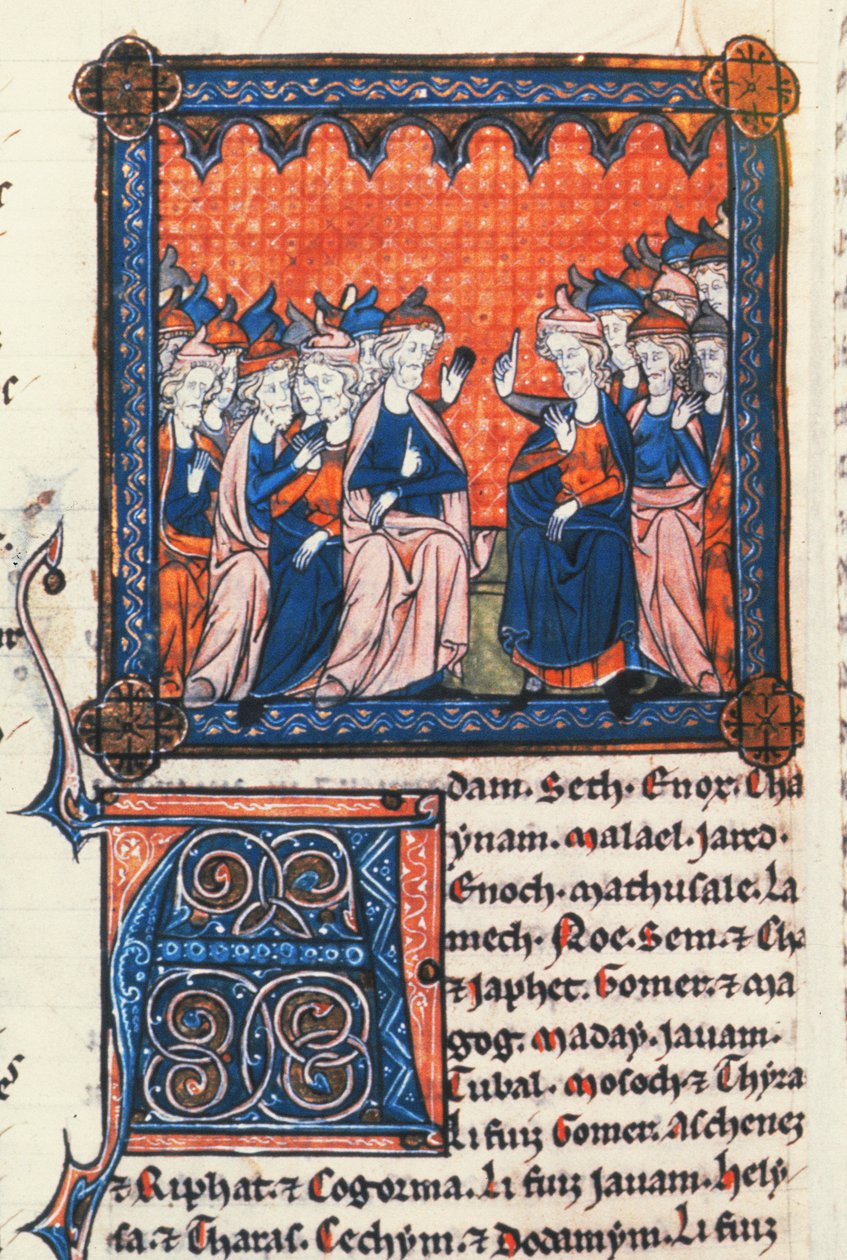 Adam. Seth. Enox. Cha
ynam. malael. Jared.
Enoch. mathusale. La
mech. Noe. Sem. ⁊ Cha
⁊ Japhet. Gomer. ⁊ ma
gog. maday. Jauam.
Tubal. mosoch ⁊ Thyra
Li fuiz Gomer. Aschenez
⁊ Riphat. ⁊ Togorma. Li fuiz Jauam. hely
sa. ⁊ Tharas. Cechym. ⁊ Dodamym. Li fuiz